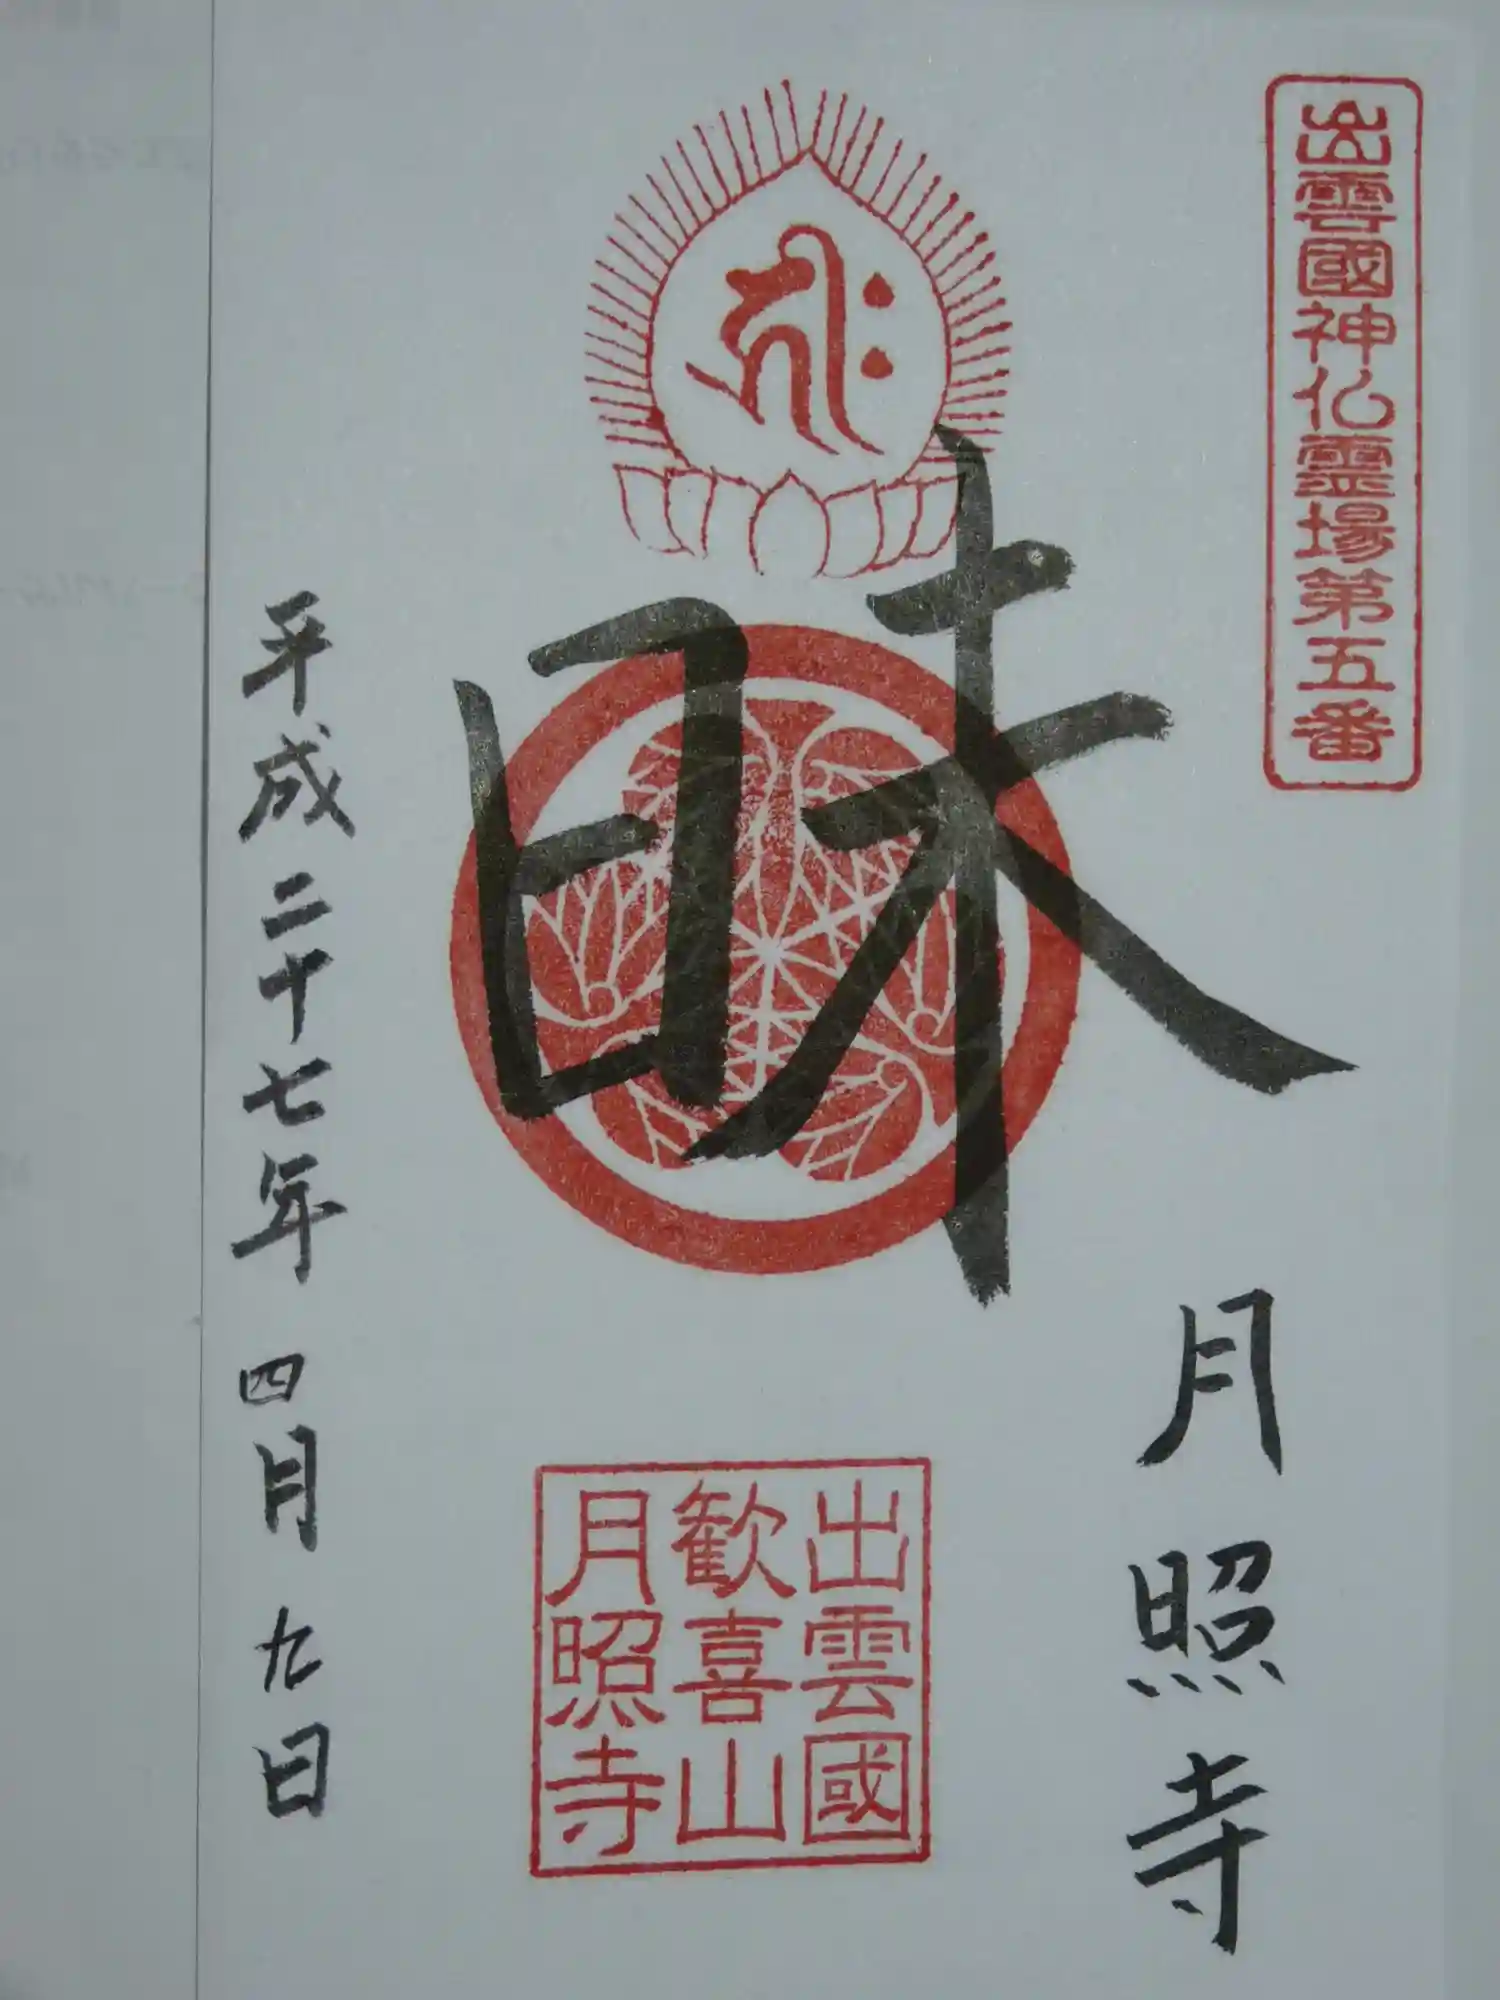 出雲國神仏霊場第五番
月照寺
昧
出雲國
歓喜山
月照寺
平成二十七年四月九日